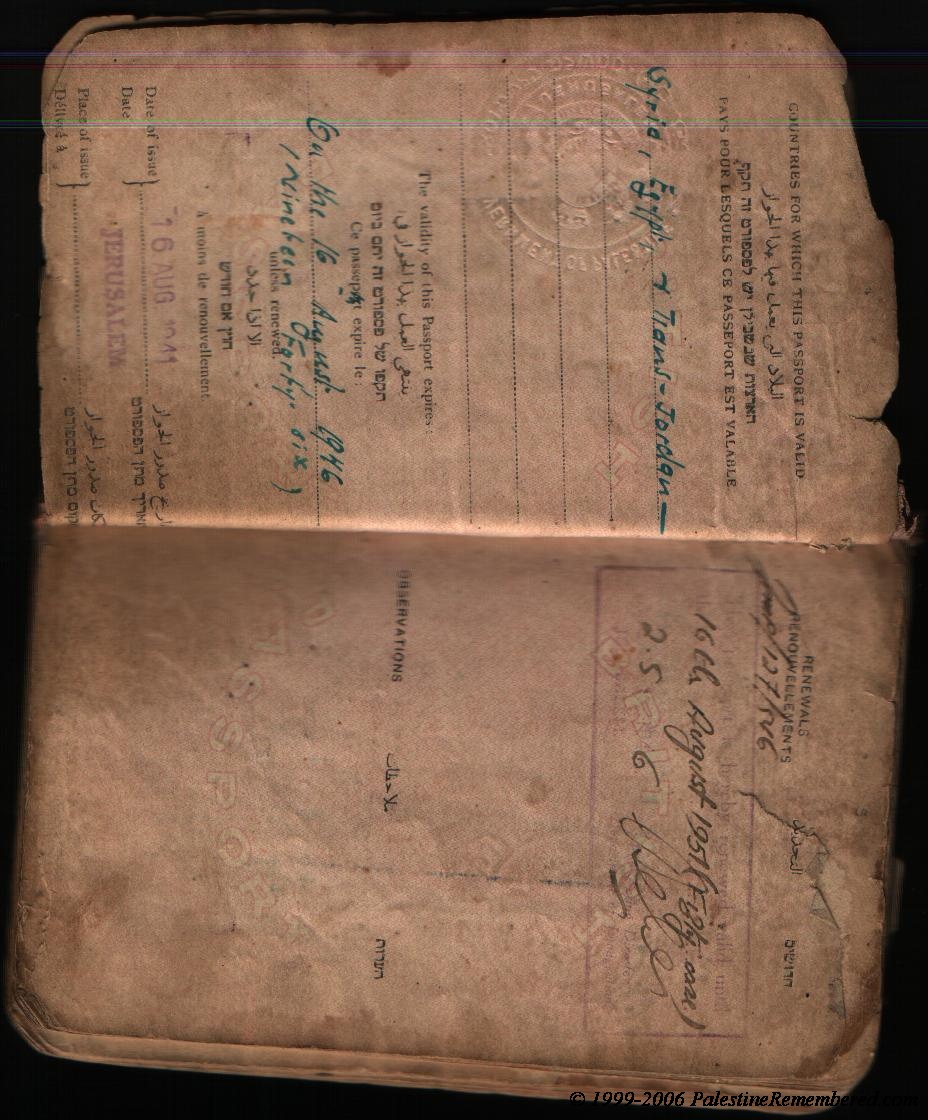 COUNTRIES FOR WHICH THIS PASSPORT IS VALID
البلاد التي يعمل فيها بهذا الجواز
הארצות שבשבילן יש לפספורט זה תקף
PAYS POUR LESQUELS CE PASSEPORT EST VALABLE
Syria, Egypt & Trans-Jordan —
The validity of this Passport expires:
ينتهي العمل بهذا الجواز في
תקפו של פספורט זה יתם ביום
Ce passeport expire le:
On the 16 August 1946
(Nineteen Forty-six)
unless renewed.
الا اذا جدد
חוץ אם חודש
à moins de renouvellement.
Date of issue
Date
16 AUG 1941
تاريخ صدور الجواز
תאריך מתן הפספורט
Place of issue
Délivré à
JERUSALEM
مكان صدور الجواز
מקום מתן הפספורט
RENEWALS
RENOUVELLEMENTS
التجديد
חדושים
16th August 1951 (Fifty one)
2.5 6
OBSERVATIONS
ملاحظات
הערות
BRITISH
PASSPORT
© 1999-2006 PalestineRemembered.com